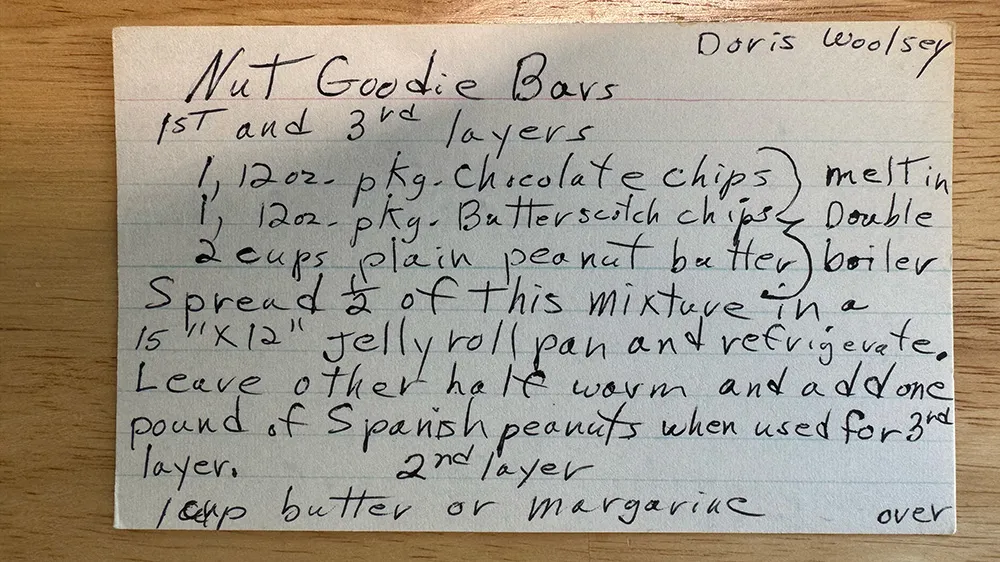 Doris Woolsey
Nut Goodie Bars
1ST and 3rd layers
1, 12oz. pkg. Chocolate chips } melt in
1, 12oz. pkg. Butterscotch chips } Double
2 cups plain peanut butter } boiler
Spread 1/2 of this mixture in a
15"X12" Jelly roll pan and refrigerate.
Leave other half warm and add one
pound of Spanish peanuts when used for 3rd
layer. 2nd layer
1 cup butter or margarine over